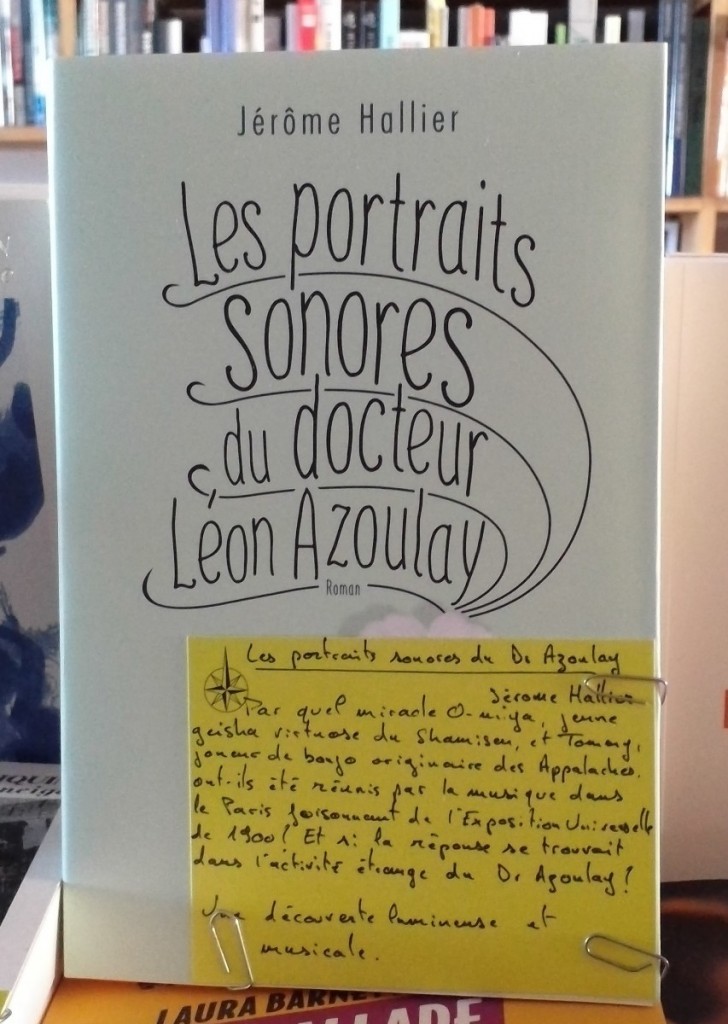 Jérôme Hallier
Les portraits
sonores
du docteur
Léon Azoulay
Roman
Les portraits sonores du Dr Azoulay
Jérome Hallier
Par quel miracle O-miya, jeune
geisha virtuose du Shamisen, et Tommy,
joueur de banjo originaire des Appalaches,
ont-ils été réunis par la musique dans
le Paris foisonnant de l'Exposition Universelle
de 1900? Et si la réponse se trouvait
dans l'activité étrange du Dr Azoulay?
Une découverte lumineuse et
musicale.
LAURA